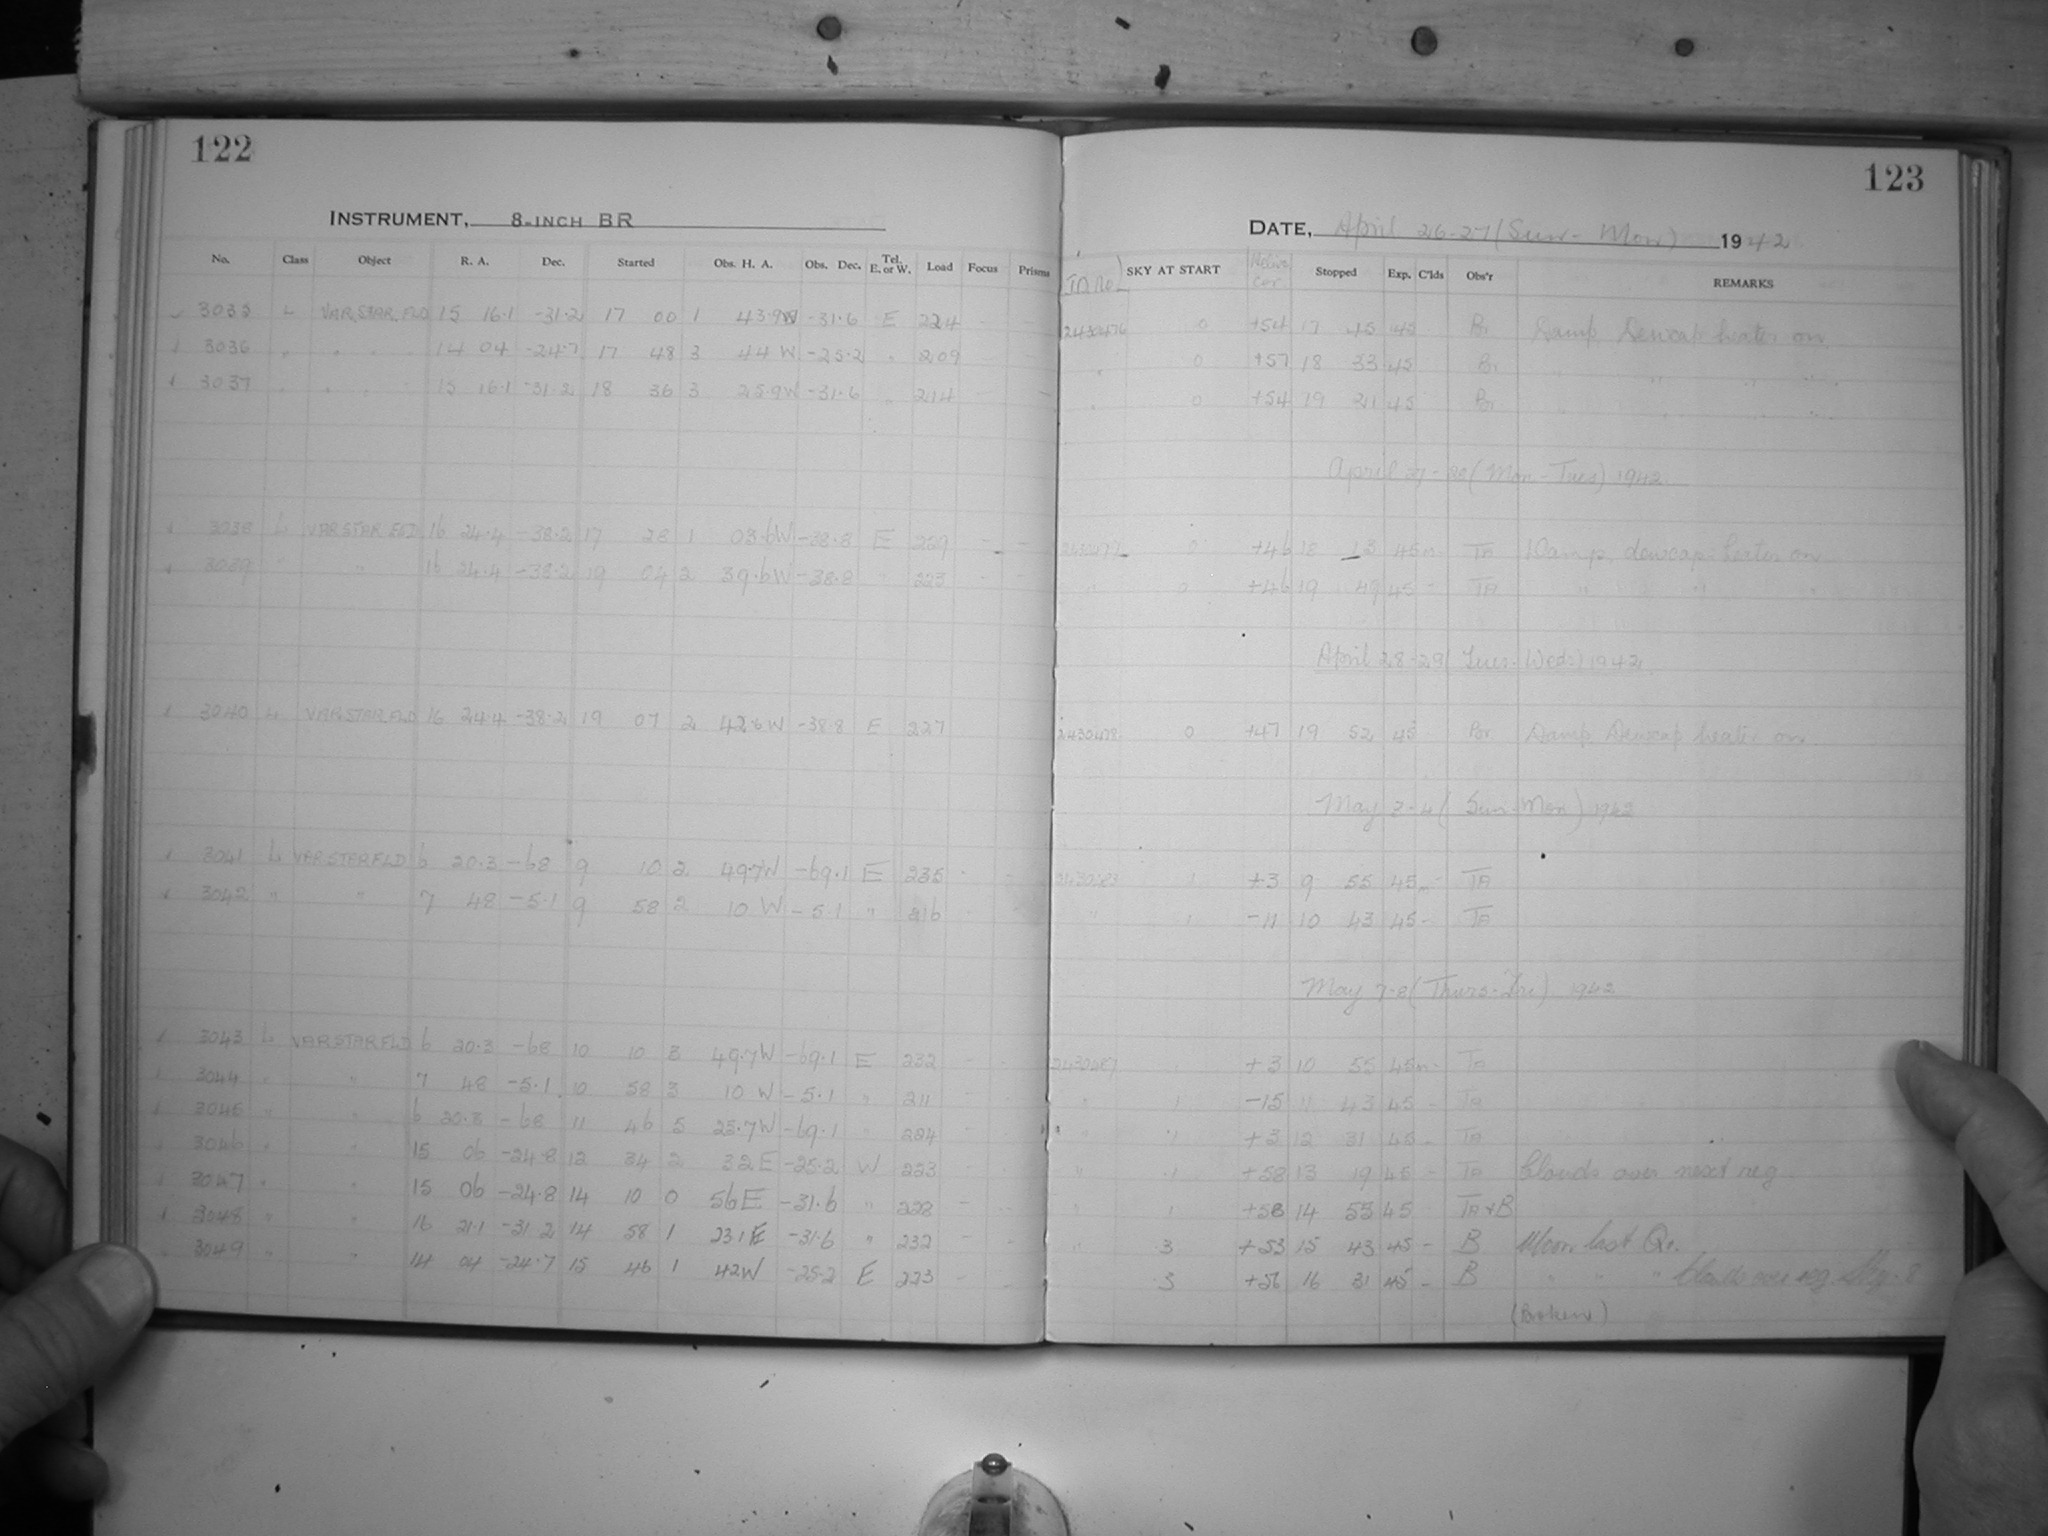 122
123
INSTRUMENT, 8-INCH BR
DATE, April 26-27 (Sun - Mon) 1942
No. Class Object R. A. Dec. Started Obs. H. A. Obs. Dec. Tel. E. or W. Load Focus Prisms SKY AT START Stopped Exp. C'lds Obs'r REMARKS
L VAR.STAR.FLD 15 16.1 -31.2 17 00 1 43.9W -31.6 E 224 2430476 0 +54 17 45 45 Br Damp Dewcap heater on
3036 " " 14 04 -24.7 17 48 3 44 W -25.2 " 209 " 0 +57 18 33 45 Br " " " "
3037 " " 15 16.1 -31.2 18 36 3 25.9W -31.6 " 214 " 0 +54 19 21 45 Br " " " "
April 27-28 (Mon-Tues) 1942
3038 L VAR STAR FLD 16 24.4 -38.2 17 28 1 03.6W -38.8 E 229 2430477 0 +46 18 13 45m TA Damp, dewcap-heater on
3039 " " 16 24.4 -38.2 19 04 2 39.6W -38.8 " 223 " 0 +46 19 49 45 - TA " " "
April 28-29 (Tues-Weds) 1942
3040 L VARSTARFLD 16 24.4 -38.2 19 07 2 42.6W -38.8 E 227 2430478 0 +47 19 52 45 Br Damp Dewcap heater on
May 3-4 (Sun-Mon) 1942
3041 L VARSTARFLD 6 20.3 -68 9 10 2 49.7W -69.1 E 235 2430483 1 +3 9 55 45m- TA
3042 " " 7 48 -5.1 9 58 2 10 W -5.1 " 216 " 1 -11 10 43 45 - TA
May 7-8 (Thurs-Fri) 1942
3043 L VARSTARFLD 6 20.3 -68 10 10 3 49.7W -69.1 E 232 2430487 1 +3 10 55 45m- TA
3044 " " 7 48 -5.1 10 58 3 10 W -5.1 " 211 " 1 -15 11 43 45 - TA
3045 " " 6 20.3 -68 11 46 5 25.7W -69.1 " 224 " 1 +3 12 31 45 - TA
3046 " " 15 06 -24.8 12 34 2 32E -25.2 W 223 " 1 +58 13 19 45 - TA Clouds over next reg.
3047 " " 15 06 -24.8 14 10 0 56E -31.6 " 228 " 1 +58 14 55 45 TA+B
3048 " " 16 21.1 -31.2 14 58 1 23.1E -31.6 " 232 " 3 +53 15 43 45 - B Moon last Qr.
3049 " " 14 04 -24.7 15 46 1 42W -25.2 E 223 3 +56 16 31 45 - B " " " Clouds over reg.
(Broken)